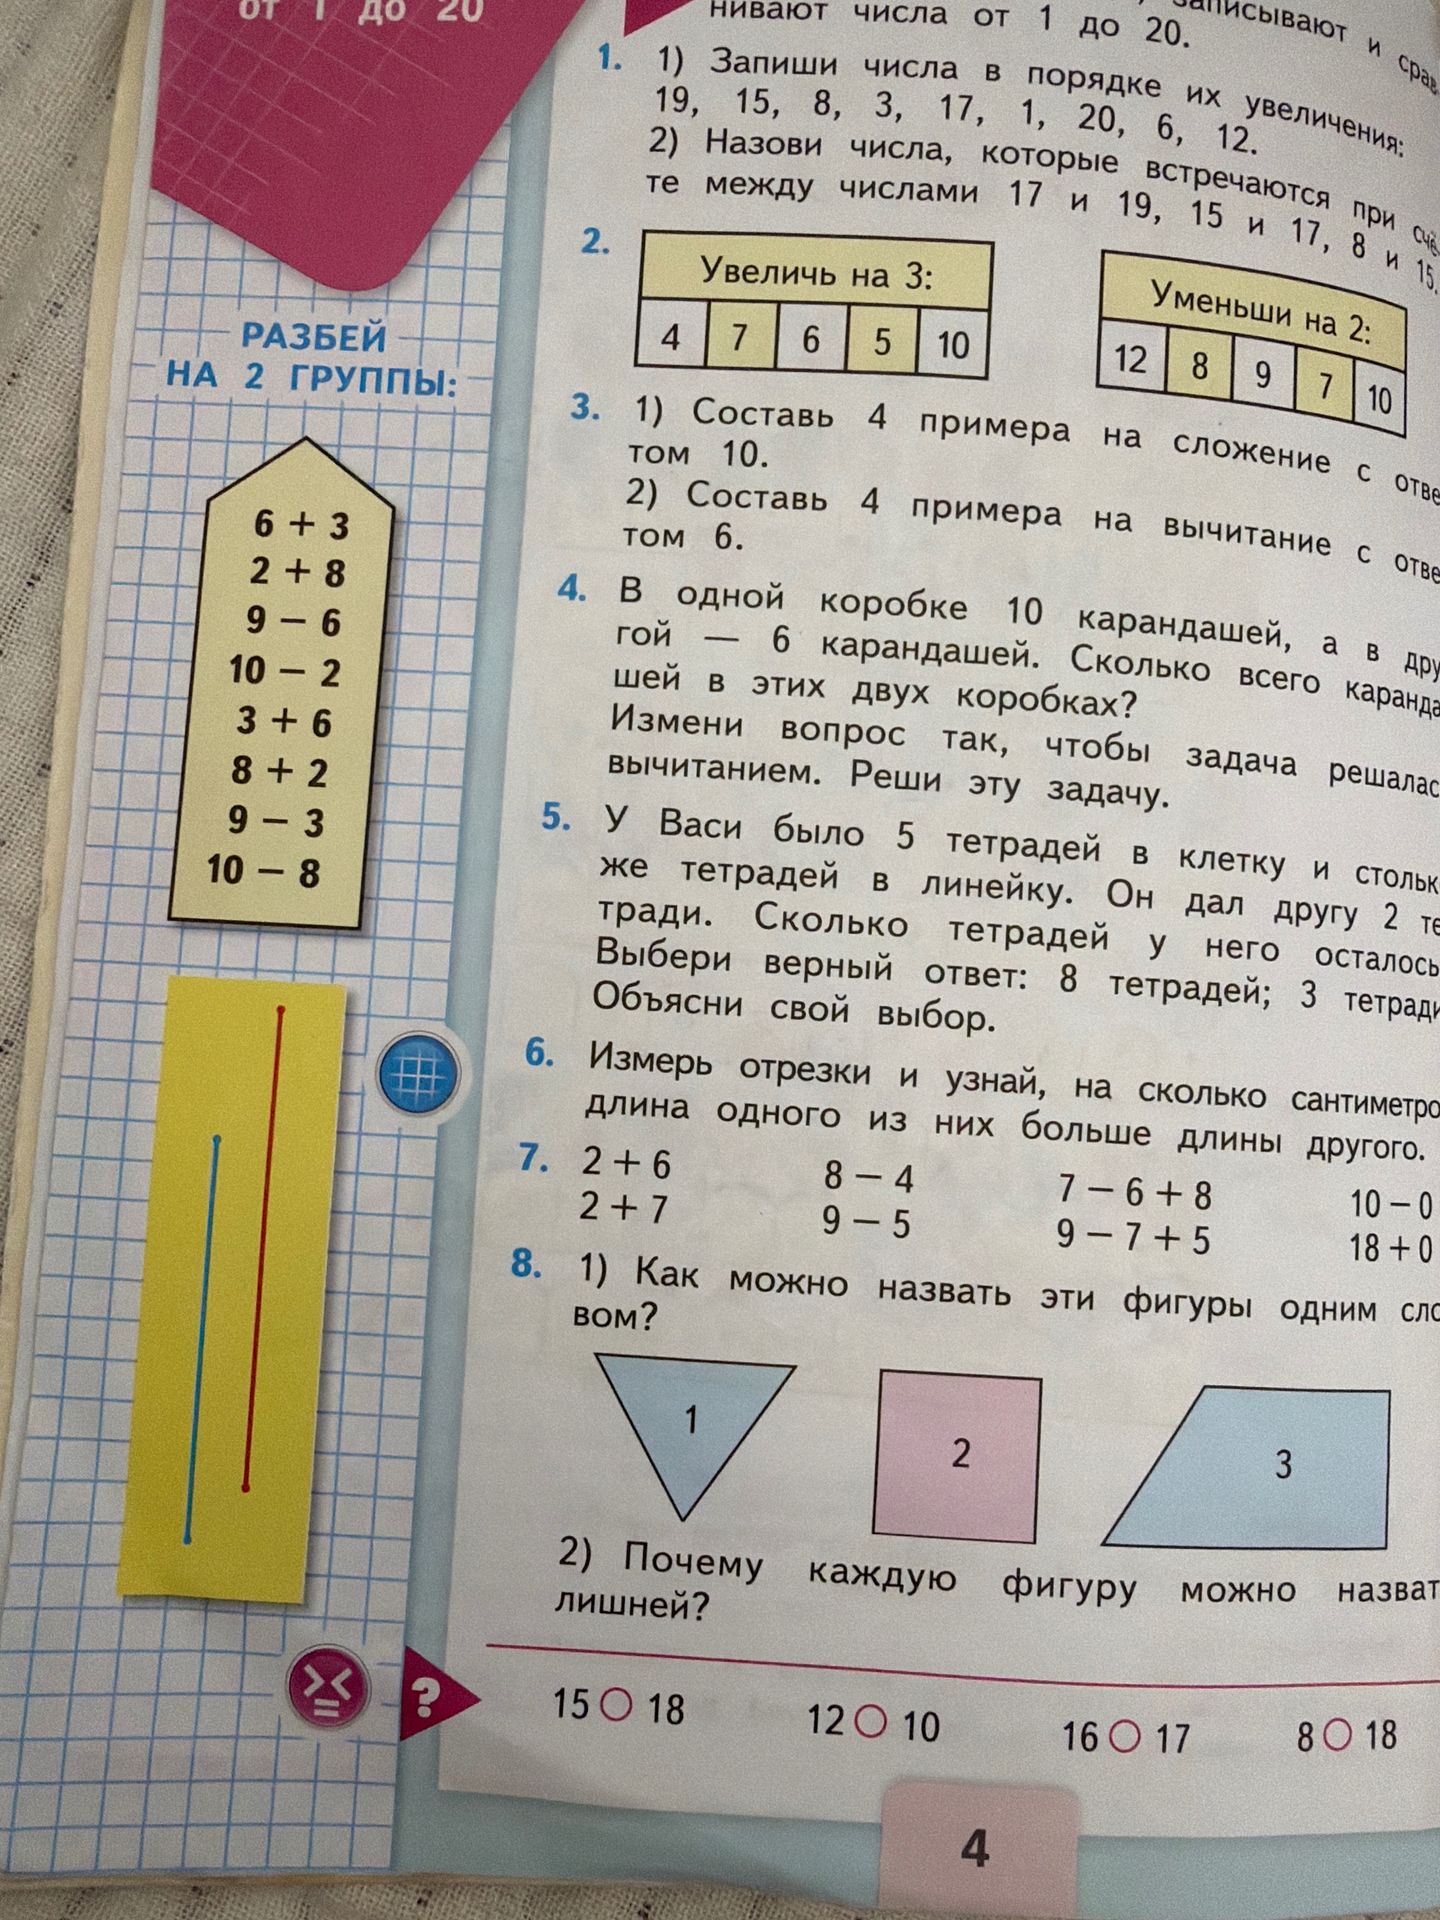 от 1 до 20
записывают и срав
нивают числа от 1 до 20.
1. 1) Запиши числа в порядке их увеличения:
19, 15, 8, 3, 17, 1, 20, 6, 12.
2) Назови числа, которые встречаются при счё-
те между числами 17 и 19, 15 и 17, 8 и 15.
2. Увеличь на 3:
4 7 6 5 10
Уменьши на 2:
12 8 9 7 10
3. 1) Составь 4 примера на сложение с отве
том 10.
2) Составь 4 примера на вычитание с отве
том 6.
4. В одной коробке 10 карандашей, а в дру
гой — 6 карандашей. Сколько всего каранда
шей в этих двух коробках?
Измени вопрос так, чтобы задача решалас
вычитанием. Реши эту задачу.
5. У Васи было 5 тетрадей в клетку и стольк
же тетрадей в линейку. Он дал другу 2 те
тради. Сколько тетрадей у него осталось
Выбери верный ответ: 8 тетрадей; 3 тетради
Объясни свой выбор.
6. Измерь отрезки и узнай, на сколько сантиметро
длина одного из них больше длины другого.
7. 2 + 6 8 − 4 7 − 6 + 8 10 − 0
2 + 7 9 − 5 9 − 7 + 5 18 + 0
8. 1) Как можно назвать эти фигуры одним сло
вом?
1 2 3
2) Почему каждую фигуру можно назват
лишней?
РАЗБЕЙ
НА 2 ГРУППЫ:
6 + 3
2 + 8
9 − 6
10 − 2
3 + 6
8 + 2
9 − 3
10 − 8
> < =
?
15 ○ 18 12 ○ 10 16 ○ 17 8 ○ 18
4